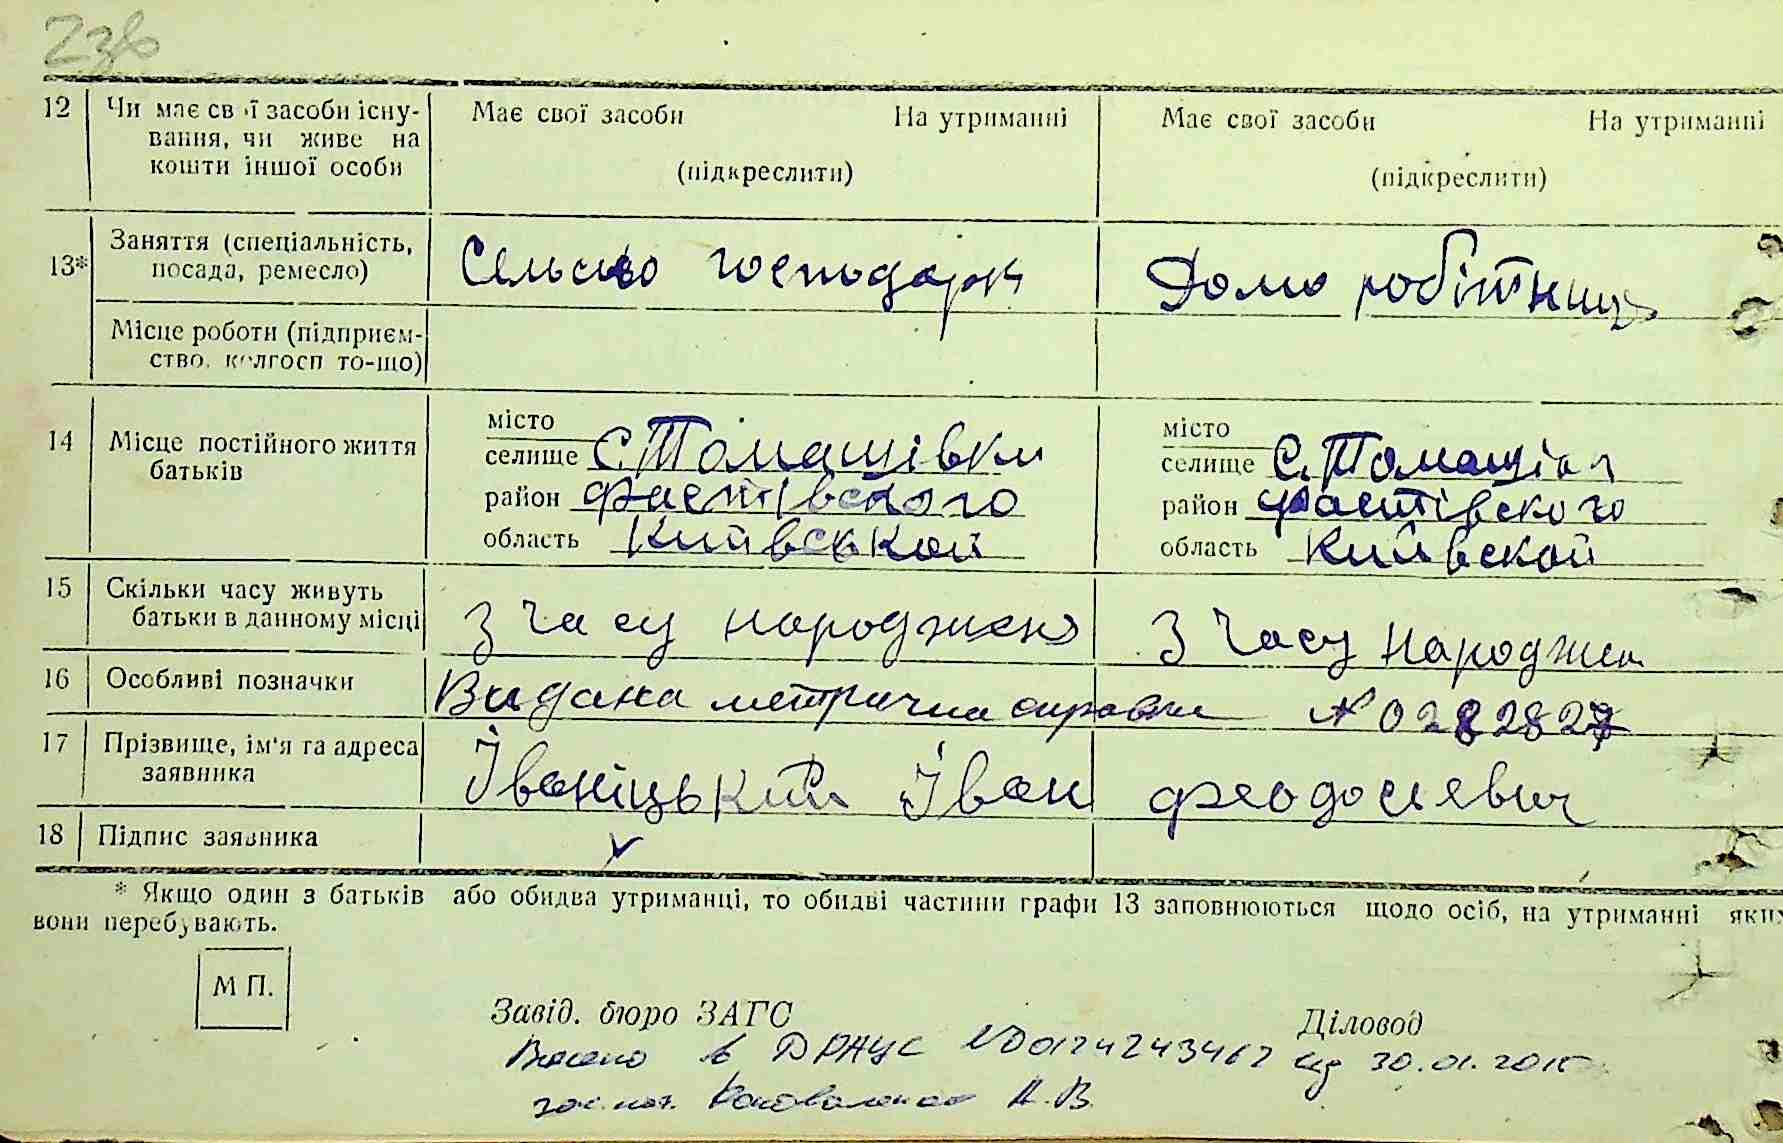 238
12 Чи має свої засоби існу-
вання, чи живе на
кошти іншої особи
Має свої засоби На утриманні
(підкреслити)
Має свої засоби На утриманні
(підкреслити)
13* Заняття (спеціальність,
посада, ремесло)
Сельсько господарк
Домо робітниця
Місце роботи (підприєм-
ство, колгосп то-що)
14 Місце постійного життя
батьків
місто
селище с. Томашівки
район Фастівського
область Київськой
місто
селище с. Томашівки
район Фастівского
область Київской
15 Скільки часу живуть
батьки в данному місці
З часу народження
З часу народжен
16 Особливі позначки
Видана метрична справка № 0282827
17 Прізвище, ім'я та адреса
заявника
Іваніцький Іван Феодосіевич
18 Підпис заявника
* Якщо один з батьків або обидва утриманці, то обидві частини графи 13 заповнюються щодо осіб, на утриманні яких
вони перебувають.
М П.
Завід. бюро ЗАГС
Діловод
Внесено в ДРАЦС №00124243462 від 30.01.2015
Коноваленко А.В.